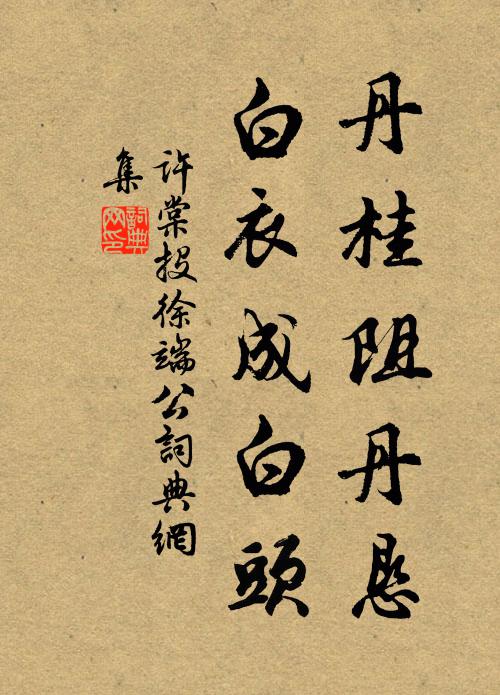 丹桂阻丹恳
白衣成白頭
許棠投徐端公詞典網
集
詞典
网印